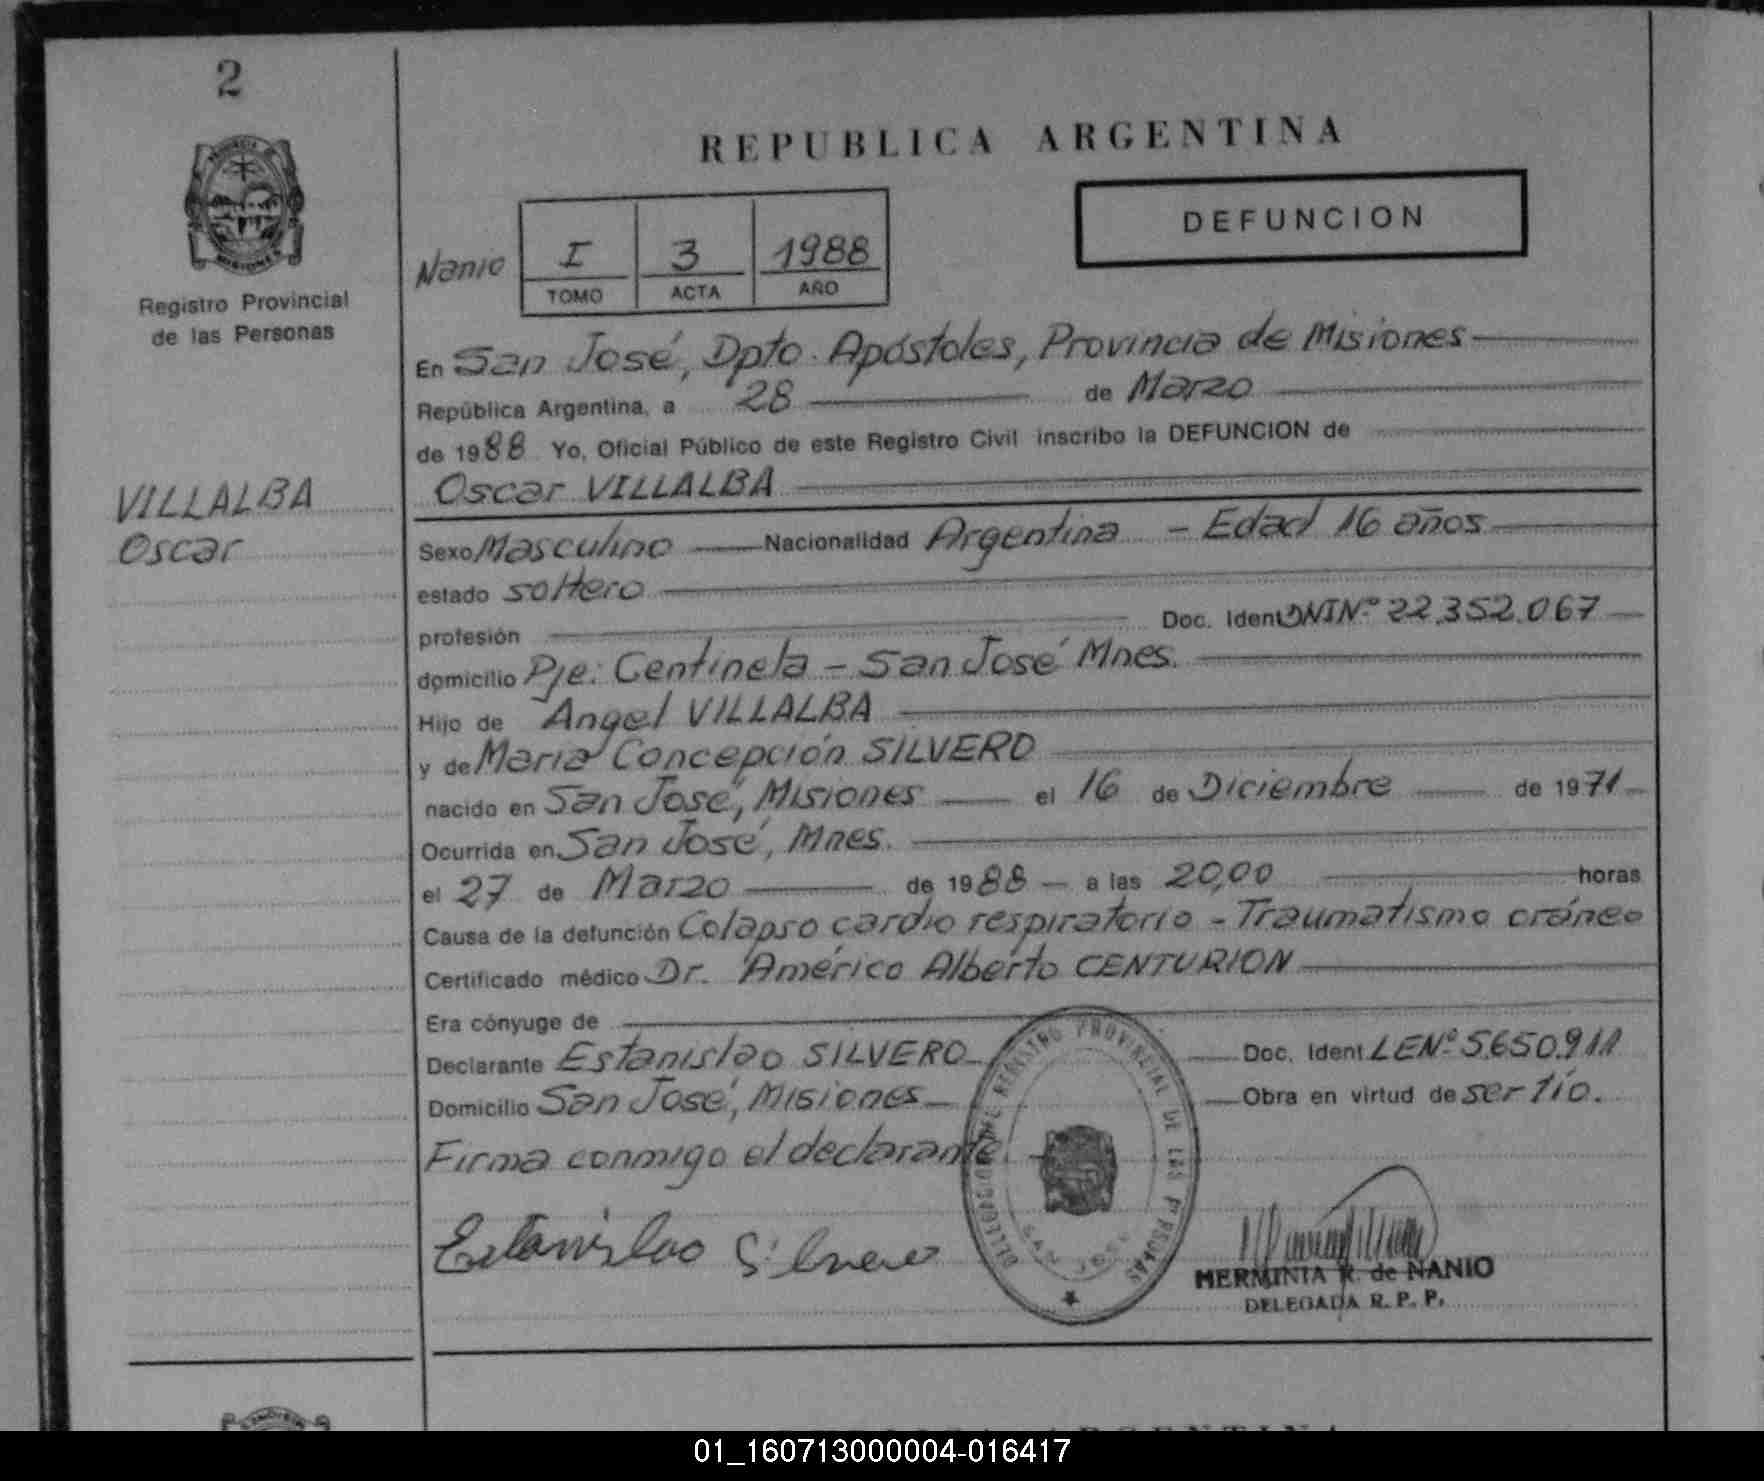 2
REPUBLICA ARGENTINA
DEFUNCION
PROVINCIA
MISIONES
Registro Provincial
de las Personas
Nanio
I 3 1988
TOMO ACTA AÑO
En San José, Dpto. Apóstoles, Provincia de Misiones
República Argentina, a 28 de Marzo
de 1988 Yo, Oficial Público de este Registro Civil inscribo la DEFUNCION de
VILLALBA
Oscar
Oscar VILLALBA
Sexo Masculino Nacionalidad Argentina - Edad 16 años
estado soltero
profesión Doc. Ident DNI Nº 22.352.067
domicilio Pje: Centinela - San José Mnes.
Hijo de Angel VILLALBA
y de Maria Concepción SILVERO
nacido en San José, Misiones el 16 de Diciembre de 1971
Ocurrida en San José, Mnes.
el 27 de Marzo de 1988 a las 20,00 horas
Causa de la defunción Colapso cardio respiratorio - Traumatismo cráneo
Certificado médico Dr. Américo Alberto CENTURION
Era cónyuge de
Declarante Estanislao SILVERO Doc. Ident LE Nº 5.650.911
Domicilio San José, Misiones Obra en virtud de ser tío.
Firma conmigo el declarante
Estanislao Silvero
DELEGACION DE REGISTRO PROVINCIAL DE LAS PERSONAS
SAN JOSE
HERMINIA R. de NANIO
DELEGADA R. P. P.
01_160713000004-016417